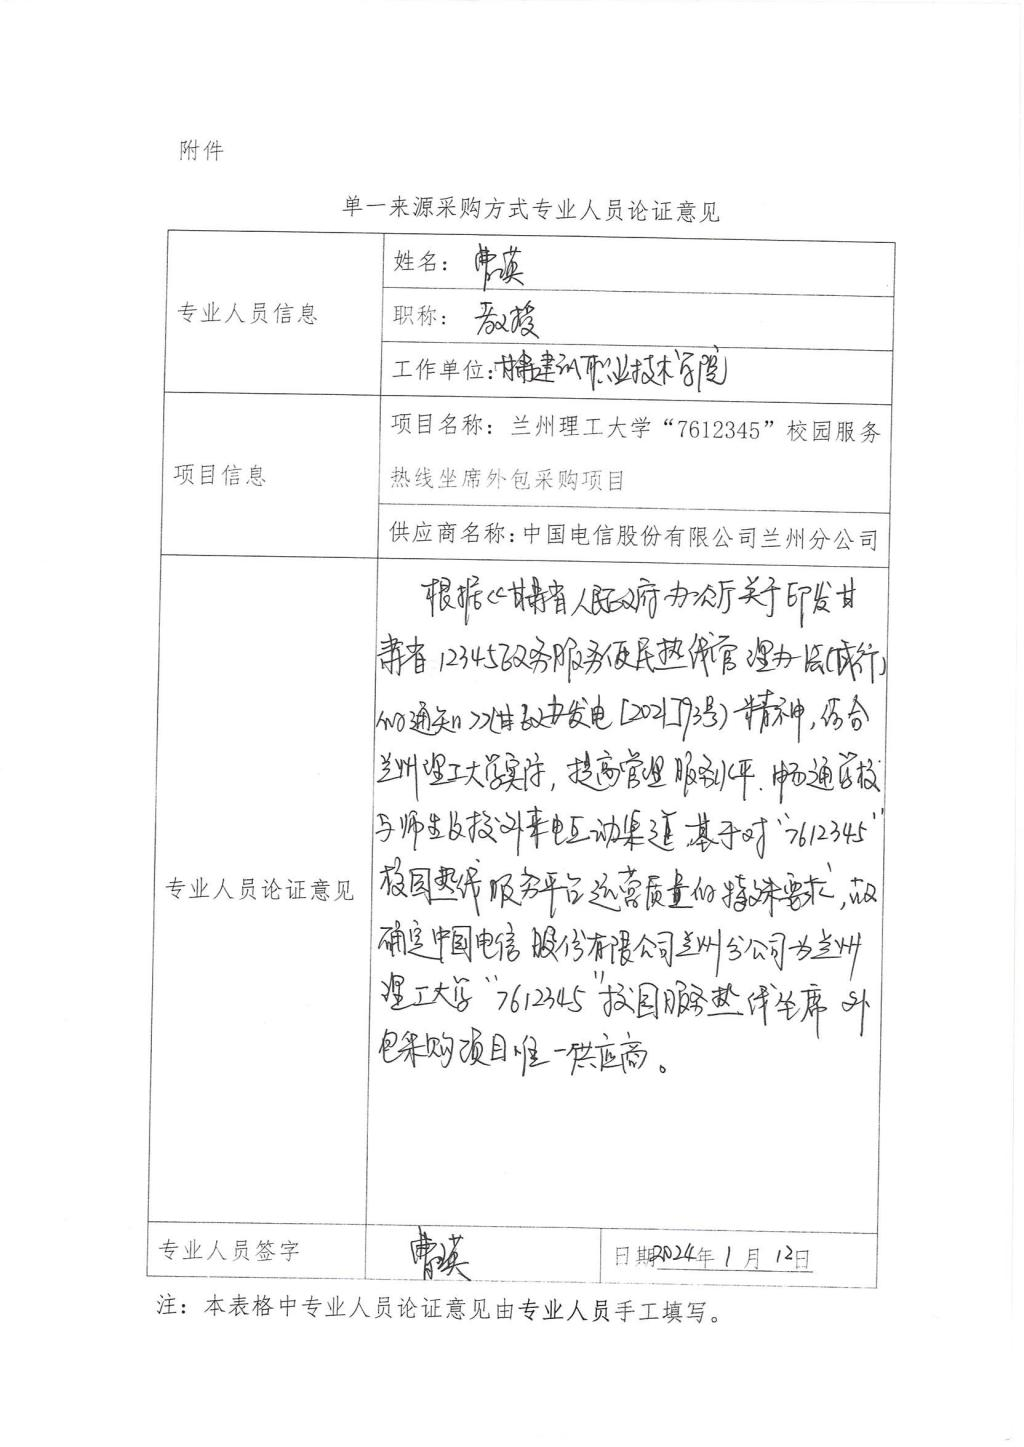 附件
单一来源采购方式专业人员论证意见
专业人员信息
姓名： 曹瑛
职称： 教授
工作单位：甘肃建筑职业技术学院
项目信息
项目名称：兰州理工大学“7612345”校园服务
热线坐席外包采购项目
供应商名称：中国电信股份有限公司兰州分公司
专业人员论证意见
根据《甘肃省人民政府办公厅关于印发甘
肃省12345政务服务便民热线管理办法（试行）
的通知》（甘政办发电[2021]93号）精神，结合
兰州理工大学实际，提高管理服务水平、畅通学校
与师生及校外来电互动渠道，基于对“7612345”
校园热线服务平台运营质量的特殊要求，故
确定中国电信股份有限公司兰州分公司为兰州
理工大学“7612345”校园服务热线坐席外
包采购项目唯一供应商。
专业人员签字
曹瑛
日期2024年1月12日
注：本表格中专业人员论证意见由专业人员手工填写。